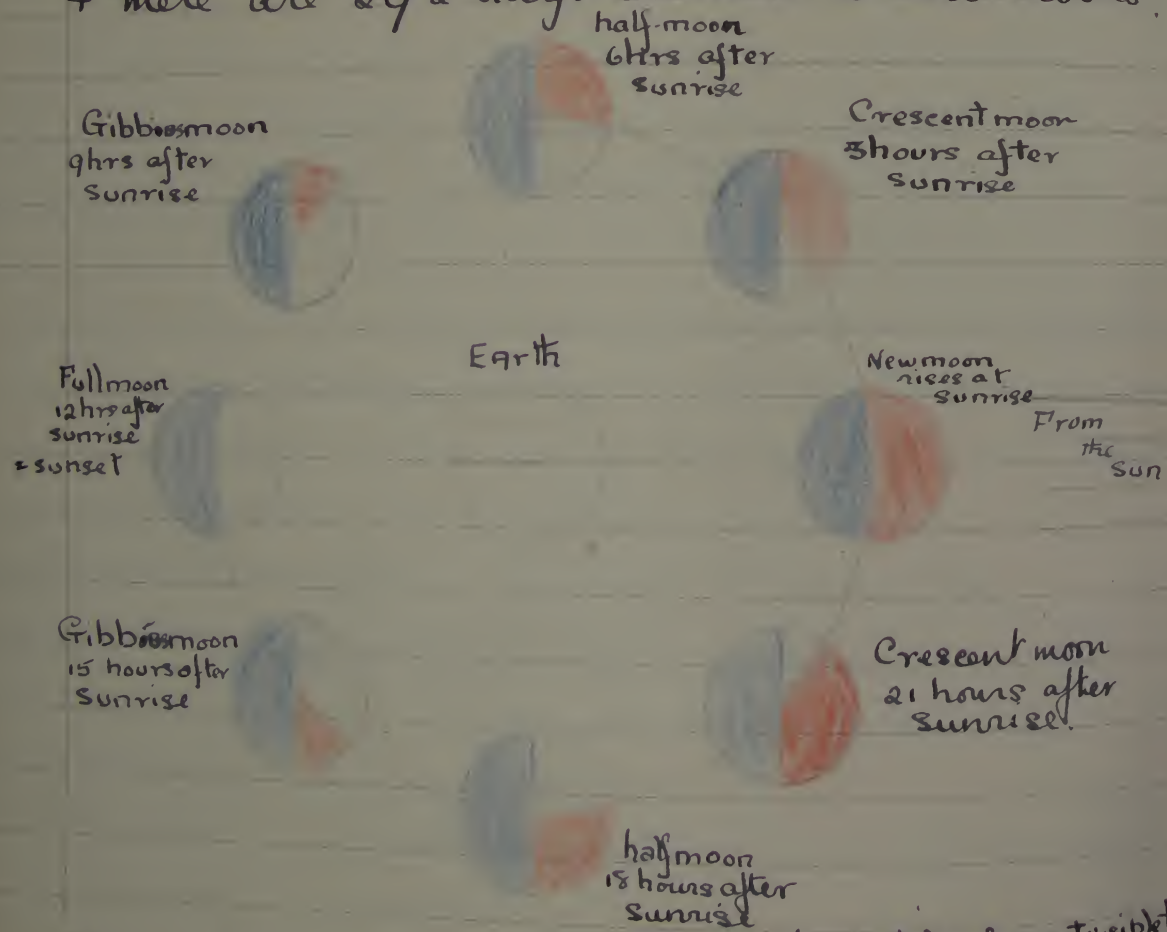 half-moon
6Hrs after
sunrise
Gibbousmoon
9hrs after
sunrise
Crescent moon
3hours after
sunrise
Earth
Fullmoon
12hrs after
sunrise
= sunset
Newmoon
rises at
sunrise
From
the
Sun
Gibbousmoon
15 hours after
Sunrise
Crescent moon
21 hours after
sunrise.
half moon
18 hours after
Sunrise